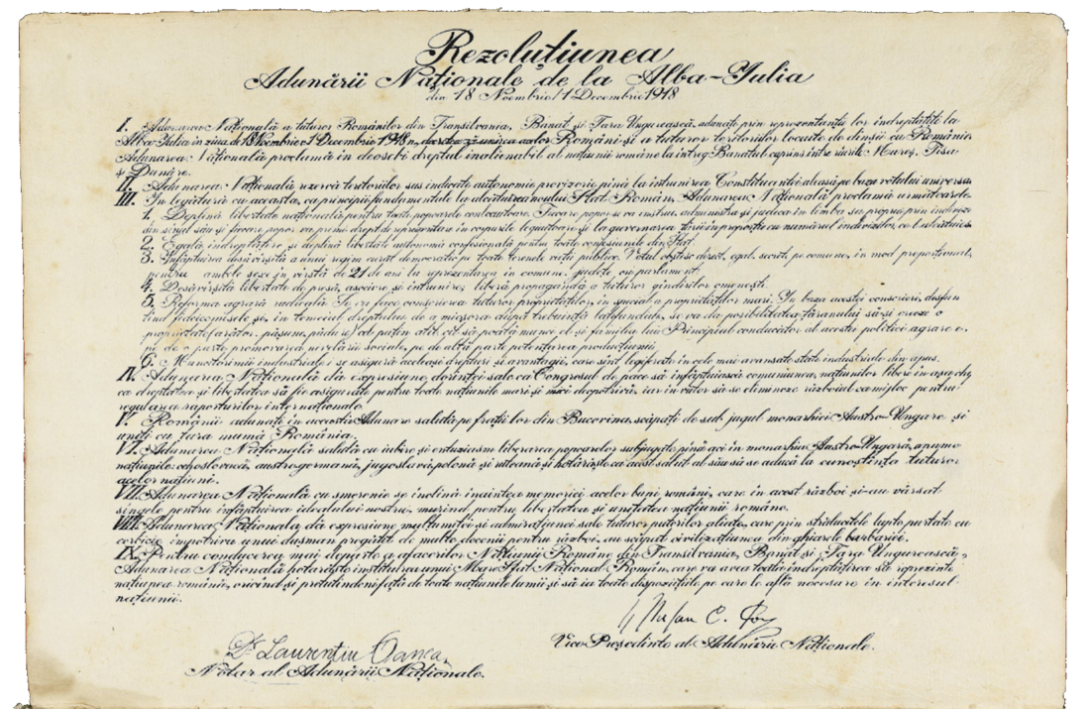 Rezoluțiunea
Adunării Naționale de la Alba-Iulia
din 18 Noembrie/1 Decembrie 1918
I. Adunarea Națională a tuturor Românilor din Transilvania, Banat și Țara Ungurească, adunați prin reprezentanții lor îndreptățiți la
Alba-Iulia în ziua de 18 Noembrie/1 Decembrie 1918, decretează unirea acelor Români și a tuturor teritoriilor locuite de dînșii cu România.
Adunarea Națională proclamă îndeosebi dreptul inalienabil al națiunii române la întreg Banatul cuprins între rîurile Mureș, Tisa
și Dunăre.
II. Adunarea Națională rezervă teritoriilor sus indicate autonomie provizorie pînă la întrunirea Constituantei aleasă pe baza votului universal.
III. În legătură cu aceasta, ca principii fundamentale la alcătuirea noului Stat Român, Adunarea Națională proclamă următoarele:
1. Deplină libertate națională pentru toate popoarele conlocuitoare. Fiecare popor se va instrui, administra și judeca în limba sa proprie prin indivizi
din sînul său și fiecare popor va primi drept de reprezentare în corpurile legiuitoare și la guvernarea țării în proporție cu numărul indivizilor ce-l alcătuiesc.
2. Egală îndreptățire și deplină libertate autonomă confesională pentru toate confesiunile din Stat.
3. Înfăptuirea desăvîrșită a unui regim curat democratic pe toate terenele vieții publice. Votul obștesc, direct, egal, secret, pe comune, în mod proporțional,
pentru ambele sexe în vîrstă de 21 de ani la reprezentarea în comune, județe ori parlament.
4. Desăvîrșită libertate de presă, asociere și întrunire, liberă propagandă a tuturor gîndirilor omenești.
5. Reforma agrară radicală. Se va face conscrierea tuturor proprietăților, în special a proprietăților mari. În baza acestei conscrieri, desființ
înd fideicomisele și, în temeiul dreptului de a micșora după trebuință latifundiile, se va da posibilitatea țăranului să-și creeze o
proprietate (arător, pășune, pădure) cel puțin atît cît să poată munci el și familia lui. Principiul conducător al acestei politici agrare e,
pe de o parte promovarea nivelării sociale, pe de altă parte potențarea producțiunii.
6. Muncitorimii industriale i se asigură aceleași drepturi și avantagii, care sînt legiferate în cele mai avansate state industriale din apus.
IV. Adunarea Națională dă expresiune dorinței sale, ca Congresul de pace să înfăptuiască comuniunea națiunilor libere în așa chip,
ca dreptatea și libertatea să fie asigurate pentru toate națiunile mari și mici deopotrivă, iar în viitor să se elimineze războiul ca mijloc pentru
regularea raporturilor internaționale.
V. Românii adunați în această Adunare salută pe frații lor din Bucovina, scăpați de sub jugul monarhiei Austro-Ungare și
uniți cu țara mumă România.
VI. Adunarea Națională salută cu iubire și entuziasm liberarea popoarelor subjugate pînă aci în monarhia Austro-Ungară, anume
națiunile: cehoslovacă, austro-germană, jugoslavă, polonă și ruteană și hotărăște ca acest salut al său să se aducă la cunoștința tuturor
acelor națiuni.
VII. Adunarea Națională cu smerenie se închină înaintea memoriei acelor bravi români, care în acest război și-au vărsat
sîngele pentru înfăptuirea idealului nostru, murind pentru libertatea și unitatea națiunii române.
VIII. Adunarea Națională dă expresiune mulțumitei și admirațiunei sale tuturor puterilor aliate, care prin strălucitele lupte purtate cu
cerbicie împotriva unui dușman pregătit de multe decenii pentru război, au scăpat civilizațiunea din ghiarele barbariei.
IX. Pentru conducerea mai departe a afacerilor Națiunii Române din Transilvania, Banat și Țara Ungurească,
Adunarea Națională hotărăște instituirea unui Mare Sfat Național Român, care va avea toată îndreptățirea să reprezinte
națiunea română, oricînd și pretutindeni față de toate națiunile lumii și să ia toate dispozițiile pe care le află necesare în interesul
națiunii.
Dr Laurențiu Oanea,
Notar al Adunării Naționale.
Vice-Președinte al Adunării Naționale.